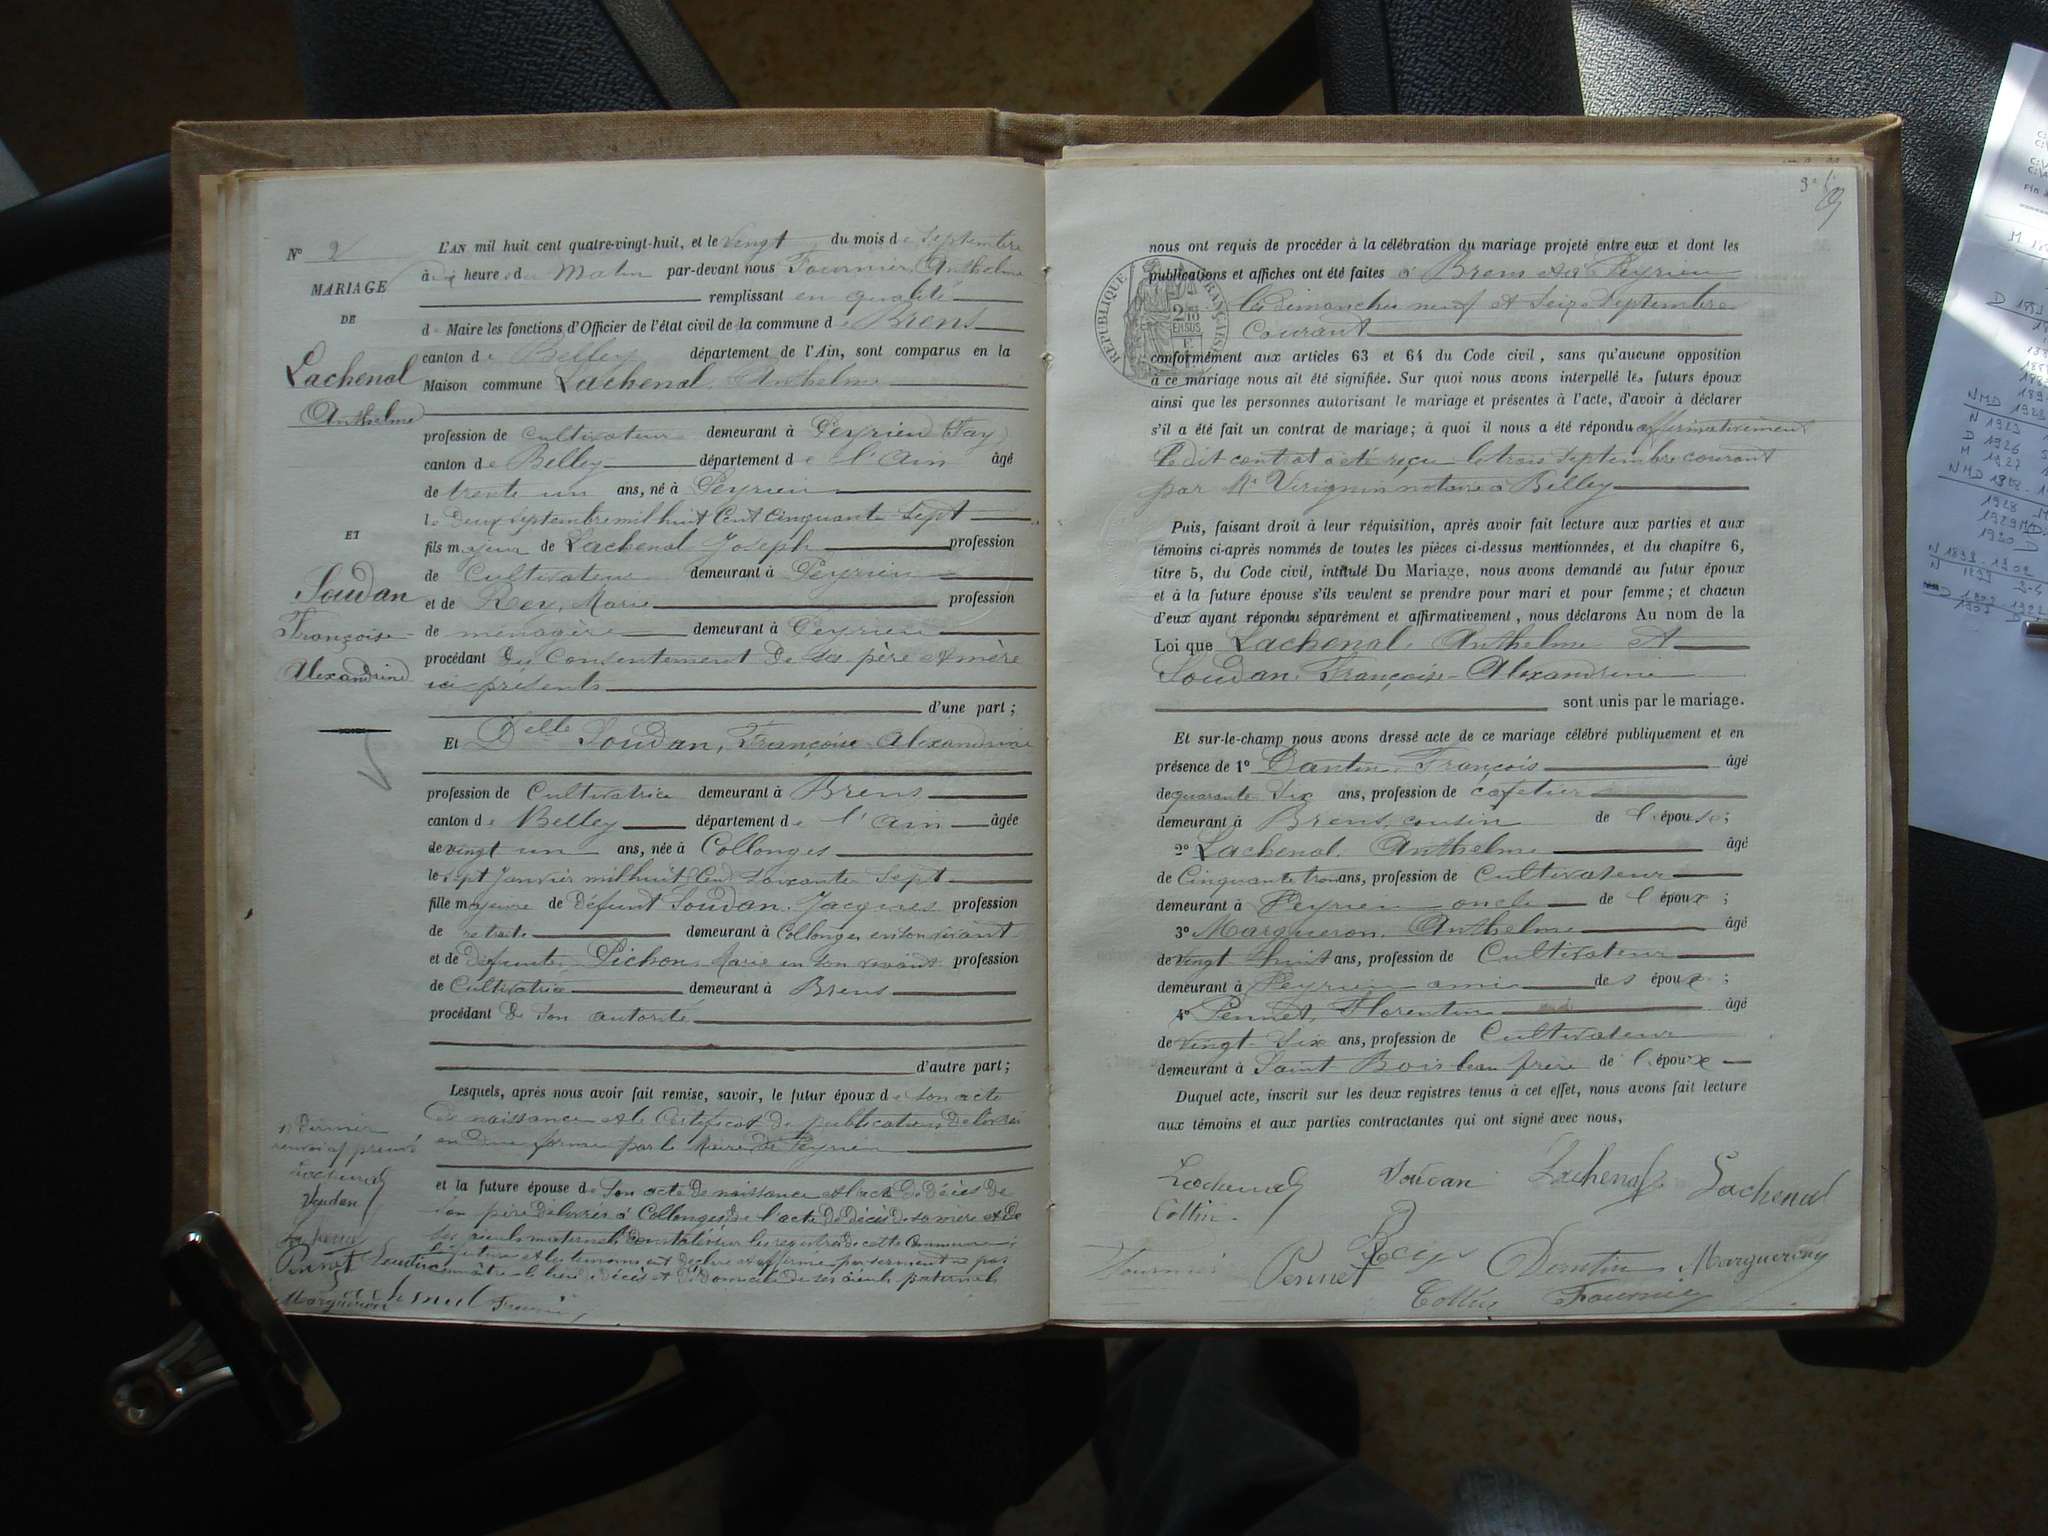 N° 2
MARIAGE
DE
Lachenal
Anthelme
ET
Soudan
Françoise
Alexandrine
L'AN mil huit cent quatre-vingt-huit, et le vingt du mois de Septembre
à dix heure du Matin par-devant nous Fournier, Anthelme
remplissant en qualité
de Maire les fonctions d'Officier de l'état civil de la commune de Brens
canton de Belley département de l'Ain, sont comparus en la
Maison commune Lachenal, Anthelme
profession de Cultivateur demeurant à Peyrieu (Fay)
canton de Belley département de l'Ain âgé
de trente un ans, né à Peyrieu
le Deux Septembre mil huit Cent Cinquante Sept
fils majeur de Lachenal Joseph profession
de Cultivateur demeurant à Peyrieu
et de Rey, Marie profession
de ménagère demeurant à Peyrieu
procédant du Consentement de ses père et mère
ici présents
d'une part ;
Et Delle Soudan, Françoise Alexandrine
profession de Cultivatrice demeurant à Brens
canton de Belley département de l'Ain âgée
de vingt un ans, née à Collonges
le sept Janvier mil huit Cent Soixante Sept
fille majeure de Défunt Soudan, Jacques profession
de retraité demeurant à Collonges en son vivant
et de Défunte Pichon, Marie en son vivant profession
de Cultivatrice demeurant à Brens
procédant de son autorité
d'autre part ;
Lesquels, après nous avoir fait remise, savoir, le futur époux de son acte
de naissance et le Certificat de publications délivré
en due forme par le Maire de Peyrieu
et la future épouse de Son acte de naissance et l'acte de décès de
son père délivrés à Collonges de l'acte de décès de sa mère et de
ses aïeuls maternels constatés sur les registres de cette Commune ;
la future et les témoins ont déclaré et affirmé par serment ne pas
connaître le lieu décès et domicile de ses aïeuls paternels
Dernier
renvoi approuvé
Lachenal
Soudan
Pennet
Margueron
nous ont requis de procéder à la célébration du mariage projeté entre eux et dont les
publications et affiches ont été faites à Brens et à Peyrieu
les dimanches neuf et Seize Septembre
Courant
RÉPUBLIQUE FRANÇAISE
conformément aux articles 63 et 64 du Code civil, sans qu'aucune opposition
à ce mariage nous ait été signifiée. Sur quoi nous avons interpellé les futurs époux
ainsi que les personnes autorisant le mariage et présentes à l'acte, d'avoir à déclarer
s'il a été fait un contrat de mariage ; à quoi il nous a été répondu affirmativement
Ledit contrat a été reçu le trois Septembre courant
par Me Virignin notaire à Belley
Puis, faisant droit à leur réquisition, après avoir fait lecture aux parties et aux
témoins ci-après nommés de toutes les pièces ci-dessus mentionnées, et du chapitre 6,
titre 5, du Code civil, intitulé Du Mariage, nous avons demandé au futur époux
et à la future épouse s'ils veulent se prendre pour mari et pour femme ; et chacun
d'eux ayant répondu séparément et affirmativement, nous déclarons Au nom de la
Loi que Lachenal, Anthelme et
Soudan, Françoise-Alexandrine
sont unis par le mariage.
Et sur-le-champ nous avons dressé acte de ce mariage célébré publiquement et en
présence de 1° Dantin, François âgé
de quarante Six ans, profession de cafetier
demeurant à Brens, cousin de l'épouse ;
2° Lachenal, Anthelme âgé
de Cinquante trois ans, profession de Cultivateur
demeurant à Peyrieu oncle de l'époux ;
3° Margueron, Anthelme âgé
de vingt huit ans, profession de Cultivateur
demeurant à Peyrieu ami des époux ;
4° Pennet, Florentin âgé
de vingt-Six ans, profession de Cultivateur
demeurant à Saint Bois beau frère de l'époux
Duquel acte, inscrit sur les deux registres tenus à cet effet, nous avons fait lecture
aux témoins et aux parties contractantes qui ont signé avec nous,
Lachenal Soudan Lachenal Lachenal
Collin
Fournier Pennet Rey Dantin Margueron
Collin Fournier